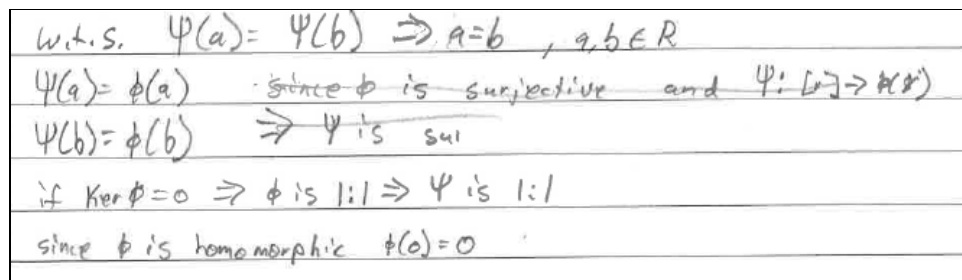 w.t.s. Ψ(a) = Ψ(b) ⇒ a=b , a,b ∈ R
Ψ(a) = ϕ(a) since ϕ is surjective and Ψ: [r] → ϕ(r)
Ψ(b) = ϕ(b) ⇒ Ψ is sur
if Ker ϕ = 0 ⇒ ϕ is 1:1 ⇒ Ψ is 1:1
since ϕ is homomorphic ϕ(0) = 0